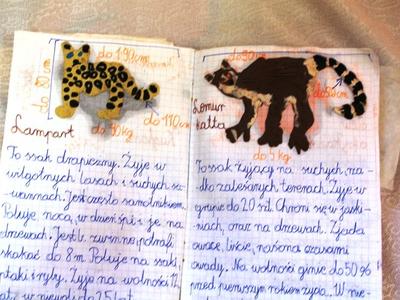 do 190cm
do 110 cm
do 90kg
Lampart
To ssak drapieżny. Żyje w
wilgotnych lasach i suchych sa-
wannach. Jest często samotnikiem.
Poluje nocą, w dzień śpi i je na
drzewach. Jest b. zwinne, potrafi
skakać do 8m. Poluje na ssaki,
ptaki i ryby. Żyje na wolności 12
lat, w niewoli do 25 lat.
do 50cm
Lemur
katta
do 5 kg
To ssak żyjący na suchych, rza-
dko zalesionych terenach. Żyje w
grupie do 20 szt. Chroni się w jaski-
niach, oraz na drzewach. Zjada
owoce, liście, nasiona czasami
owady. Na wolności ginie do 50%
przed pierwszym rokiem życia. W nie-